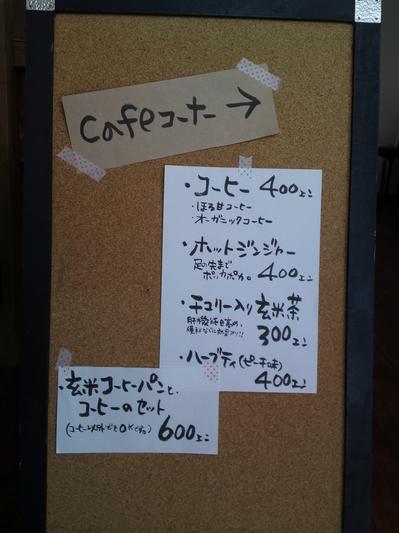 Cafeコーナー →
・コーヒー 400エン
・ほろ甘コーヒー
・オーガニックコーヒー
・ホットジンジャー
足の先まで
ポッカポカ。 400エン
・チコリー入り玄米茶
300エン
・ハーブティ(ピーチ味)
400エン
・玄米コーヒーパンと、
コーヒーのセット
(コーヒー以外でもOKです。) 600エン